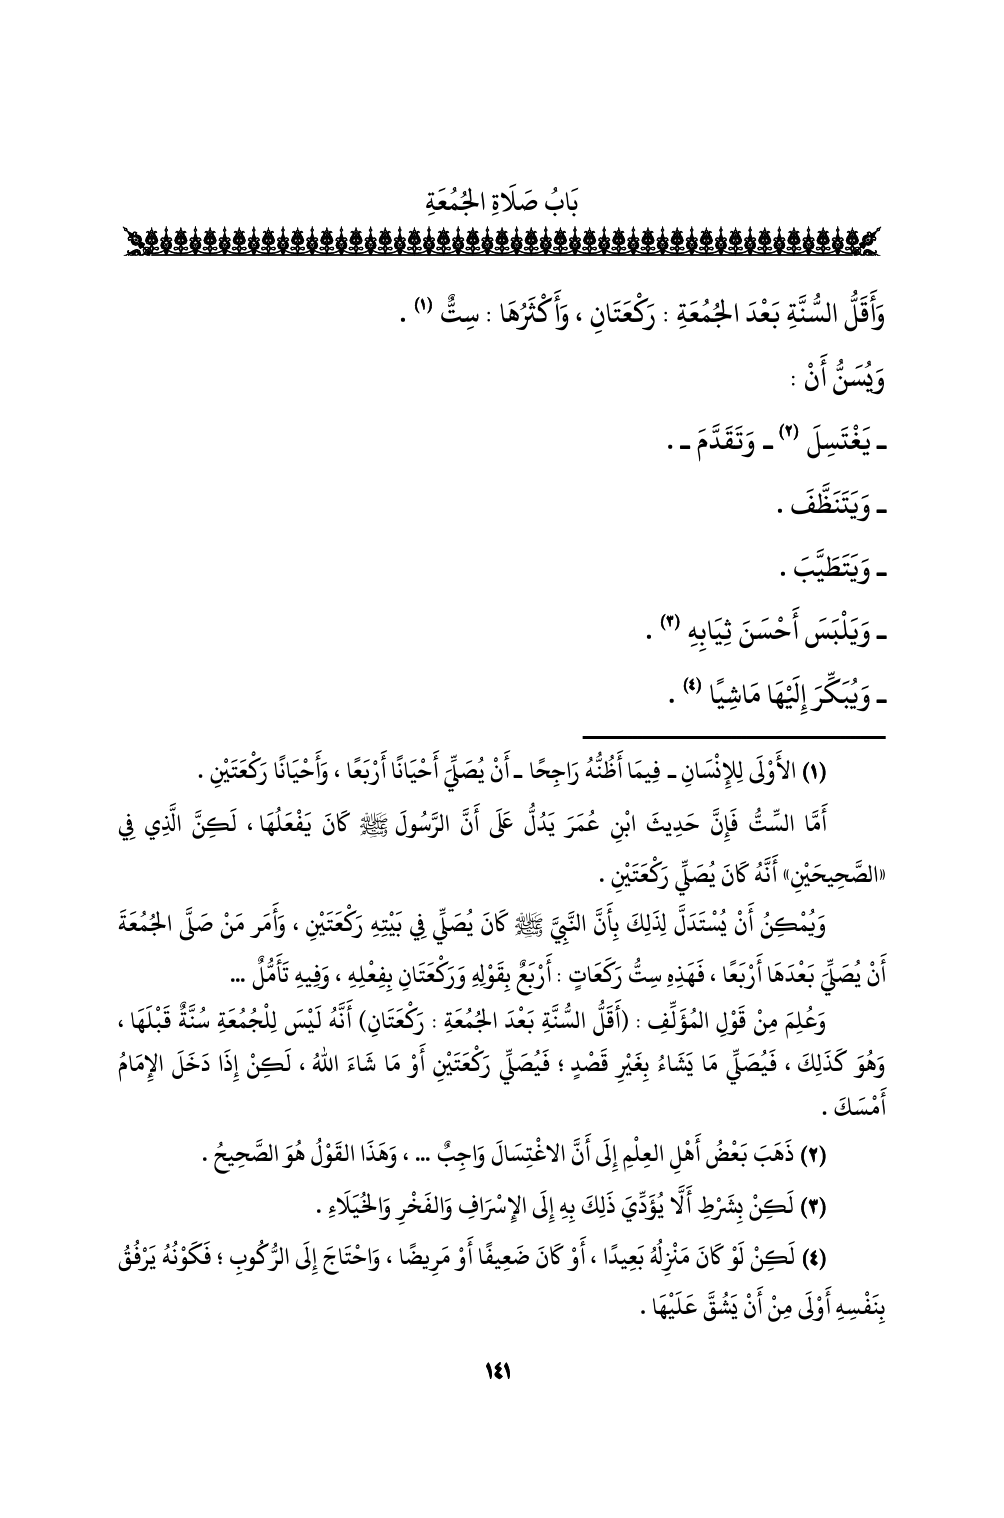 بَابُ صَلَاةِ الجُمُعَةِ
وَأَقَلُّ السُّنَّةِ بَعْدَ الجُمُعَةِ : رَكْعَتَانِ ، وَأَكْثَرُهَا : سِتٌّ (١) .
وَيُسَنُّ أَنْ :
ـ يَغْتَسِلَ (٢) ـ وَتَقَدَّمَ ـ .
ـ وَيَتَنَظَّفَ .
ـ وَيَتَطَيَّبَ .
ـ وَيَلْبَسَ أَحْسَنَ ثِيَابِهِ (٣) .
ـ وَيُبَكِّرَ إِلَيْهَا مَاشِيًا (٤) .
(١) الأَوْلَى لِلإِنْسَانِ ـ فِيمَا أَظُنُّهُ رَاجِحًا ـ أَنْ يُصَلِّيَ أَحْيَانًا أَرْبَعًا ، وَأَحْيَانًا رَكْعَتَيْنِ .
أَمَّا السِّتُّ فَإِنَّ حَدِيثَ ابْنِ عُمَرَ يَدُلُّ عَلَى أَنَّ الرَّسُولَ ﷺ كَانَ يَفْعَلُهَا ، لَكِنَّ الَّذِي فِي
«الصَّحِيحَيْنِ» أَنَّهُ كَانَ يُصَلِّي رَكْعَتَيْنِ .
وَيُمْكِنُ أَنْ يُسْتَدَلَّ لِذَلِكَ بِأَنَّ النَّبِيَّ ﷺ كَانَ يُصَلِّي فِي بَيْتِهِ رَكْعَتَيْنِ ، وَأَمَر مَنْ صَلَّى الجُمُعَةَ
أَنْ يُصَلِّيَ بَعْدَهَا أَرْبَعًا ، فَهَذِهِ سِتُّ رَكَعَاتٍ : أَرْبَعٌ بِقَوْلِهِ وَرَكْعَتَانِ بِفِعْلِهِ ، وَفِيهِ تَأَمُّلٌ ...
وَعُلِمَ مِنْ قَوْلِ المُؤَلِّفِ : (أَقَلُّ السُّنَّةِ بَعْدَ الجُمُعَةِ : رَكْعَتَانِ) أَنَّهُ لَيْسَ لِلْجُمُعَةِ سُنَّةٌ قَبْلَهَا ،
وَهُوَ كَذَلِكَ ، فَيُصَلِّي مَا يَشَاءُ بِغَيْرِ قَصْدٍ ؛ فَيُصَلِّي رَكْعَتَيْنِ أَوْ مَا شَاءَ اللهُ ، لَكِنْ إِذَا دَخَلَ الإِمَامُ
أَمْسَكَ .
(٢) ذَهَبَ بَعْضُ أَهْلِ العِلْمِ إِلَى أَنَّ الاغْتِسَالَ وَاجِبٌ ... ، وَهَذَا القَوْلُ هُوَ الصَّحِيحُ .
(٣) لَكِنْ بِشَرْطِ أَلَّا يُؤَدِّيَ ذَلِكَ بِهِ إِلَى الإِسْرَافِ وَالفَخْرِ وَالخُيَلَاءِ .
(٤) لَكِنْ لَوْ كَانَ مَنْزِلُهُ بَعِيدًا ، أَوْ كَانَ ضَعِيفًا أَوْ مَرِيضًا ، وَاحْتَاجَ إِلَى الرُّكُوبِ ؛ فَكَوْنُهُ يَرْفُقُ
بِنَفْسِهِ أَوْلَى مِنْ أَنْ يَشُقَّ عَلَيْهَا .
١٤١